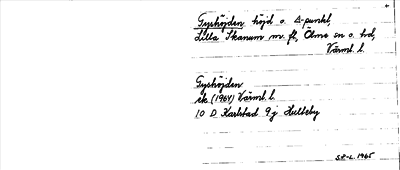 Gyshöjden höjd o. Δ-punkt,
Lilla Skanum m. fl., Ölme sn o. hd,
Värml. l.
Gyshöjden
ek. (1964) Värml. l.
10 D Karlstad 9 j Hulteby
S.P-L. 1965